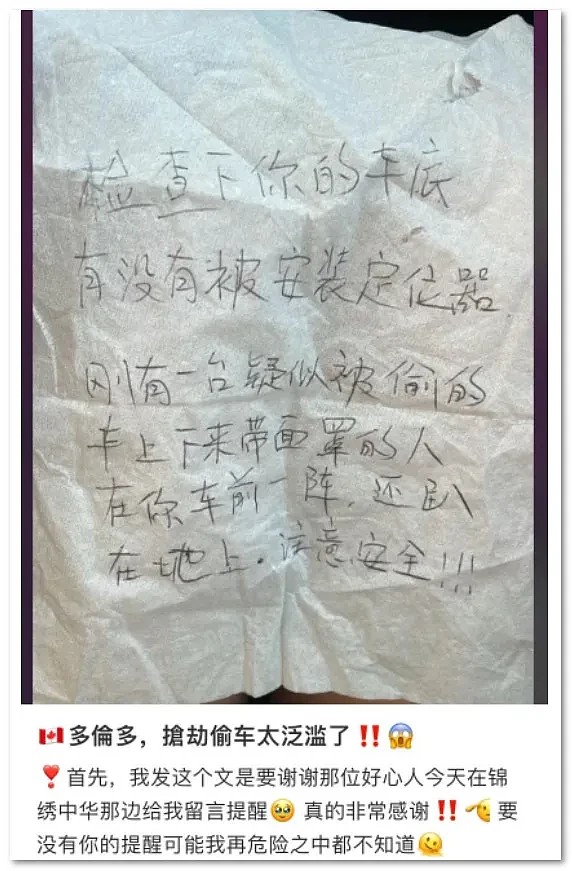 检查下你的车底
有没有被安装定位器.
刚有一台疑似被偷的
车上下来带面罩的人
在你车前一阵.还趴
在地上.注意安全!!!
🇨🇦多倫多，搶劫偷车太泛滥了‼️😱
❣️首先，我发这个文是要谢谢那位好心人今天在锦
绣中华那边给我留言提醒🥹 真的非常感谢‼️🫡 要
没有你的提醒可能我再危险之中都不知道🫠